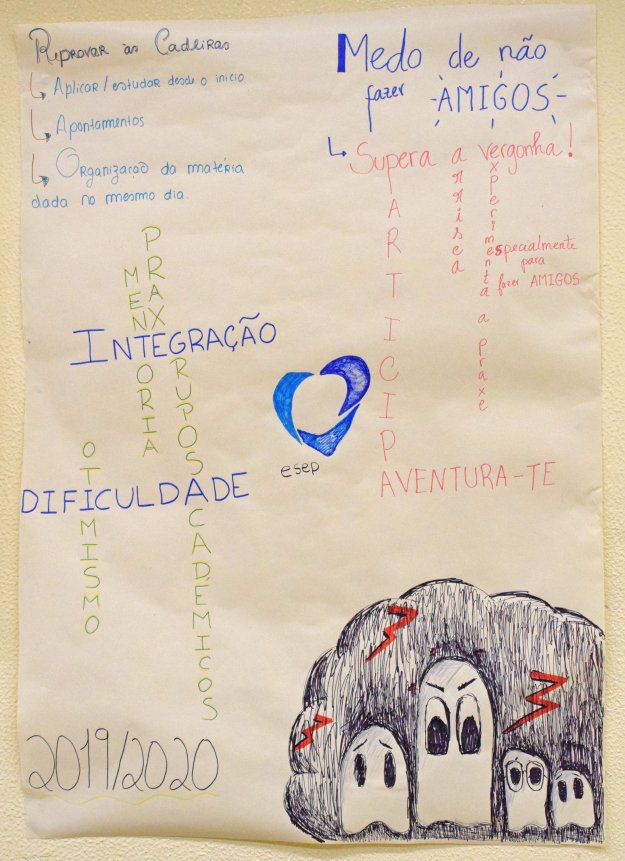 Reprovar às Cadeiras
Aplicar/estudar desde o inicio
Apontamentos
Organização da matéria
dada no mesmo dia.
Medo de não
fazer AMIGOS
Supera a vergonha!
PARTICIPA
arrisca
experimenta a praxe
especialmente
para
fazer AMIGOS
AVENTURA-TE
PRAXE
MENTORIA
INTEGRAÇÃO
GRUPOS ACADEMICOS
OTIMISMO
DIFICULDADE
esep
2019/2020